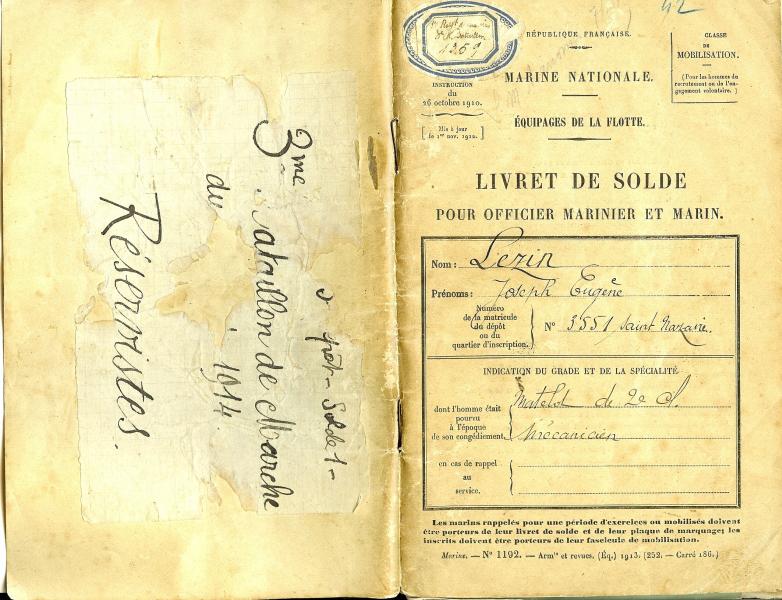 3me Bataillon de Marche
du 1914
Réservistes.
Dépôt - Soldes -
1er Régt
1369
RÉPUBLIQUE FRANÇAISE.
MARINE NATIONALE.
ÉQUIPAGES DE LA FLOTTE.
INSTRUCTION
du
26 octobre 1910.
[Mis à jour
le 1er nov. 1912.]
CLASSE
DE
MOBILISATION.
(Pour les hommes du
recrutement ou de l'en-
gagement volontaire.)
42
LIVRET DE SOLDE
POUR OFFICIER MARINIER ET MARIN.
Nom : Lezin
Prénoms : Joseph Eugène
Numéro
de la matricule
du dépôt
ou du
quartier d'inscription.
N° 3551 Saint Nazaire.
INDICATION DU GRADE ET DE LA SPÉCIALITÉ
dont l'homme était
pourvu
à l'époque
de son congédiement
Matelot de 2e cl.
Mécanicien
en cas de rappel
au
service.
Les marins rappelés pour une période d'exercices ou mobilisés doivent
être porteurs de leur livret de solde et de leur plaque de marquage; les
inscrits doivent être porteurs de leur fascicule de mobilisation.
Marine. — N° 1192. — Armts et revues. (Éq.) 1913. (252. — Carré 186.)